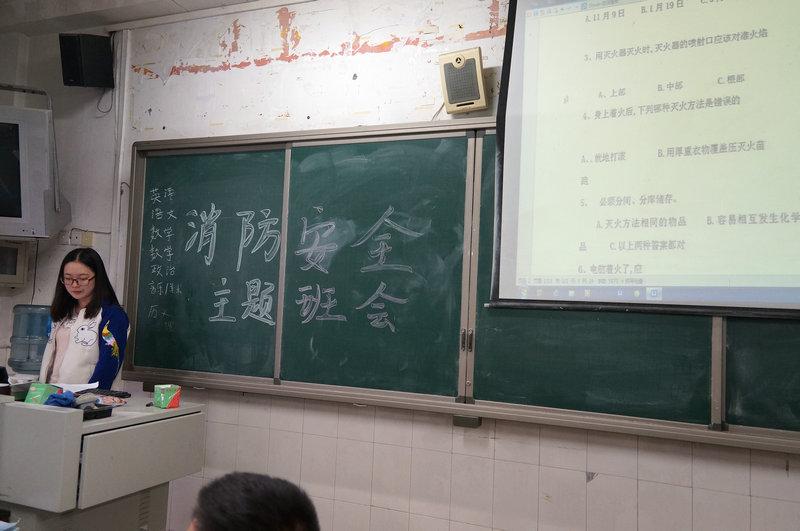 英语
语文
数学
数学
政治
音乐
历
消防安全
主题班会
A.11月9日 B.1月19日
3、用灭火器灭火时,灭火器的喷射口应该对准火焰
A、上部 B.中部 C.根部
4、身上着火后,下列哪种灭火方法是错误的
A..就地打滚 B.用厚重衣物覆盖压灭火苗
跑
5、 必须分间、分库储存。
A.灭火方法相同的物品 B.容易相互发生化学
品 C.以上两种答案都对
6、电缆着火了,应